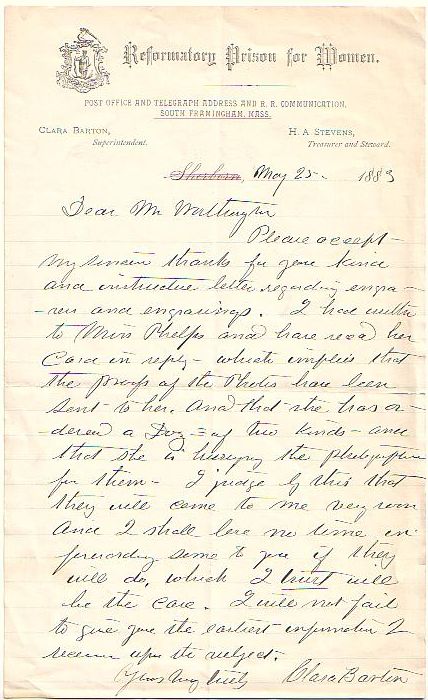 Reformatory Prison for Women.
POST OFFICE AND TELEGRAPH ADDRESS AND R. R. COMMUNICATION,
SOUTH FRAMINGHAM, MASS.
CLARA BARTON,
Superintendent.
H. A. STEVENS,
Treasurer and Steward.
Sherborn, May 25 - 1883
Dear Mr Worthington
Please accept
my sincere thanks for your kind
and instructive letter regarding engra-
-vers and engravings. I had written
to Miss Phelps and have recd her
Card in reply - which implies that
the proofs of the Photos have been
sent to her, And that she has or-
dered a Doz - of two kinds - and
that she is hurrying the photographer
for them - I judge by this that
they will come to me very soon
And I shall lose no time in
forwarding same to you if they
will do, which I trust will
be the case. I will not fail
to give you the earliest information I
receive upon the subject.
Yours very truly
Clara Barton